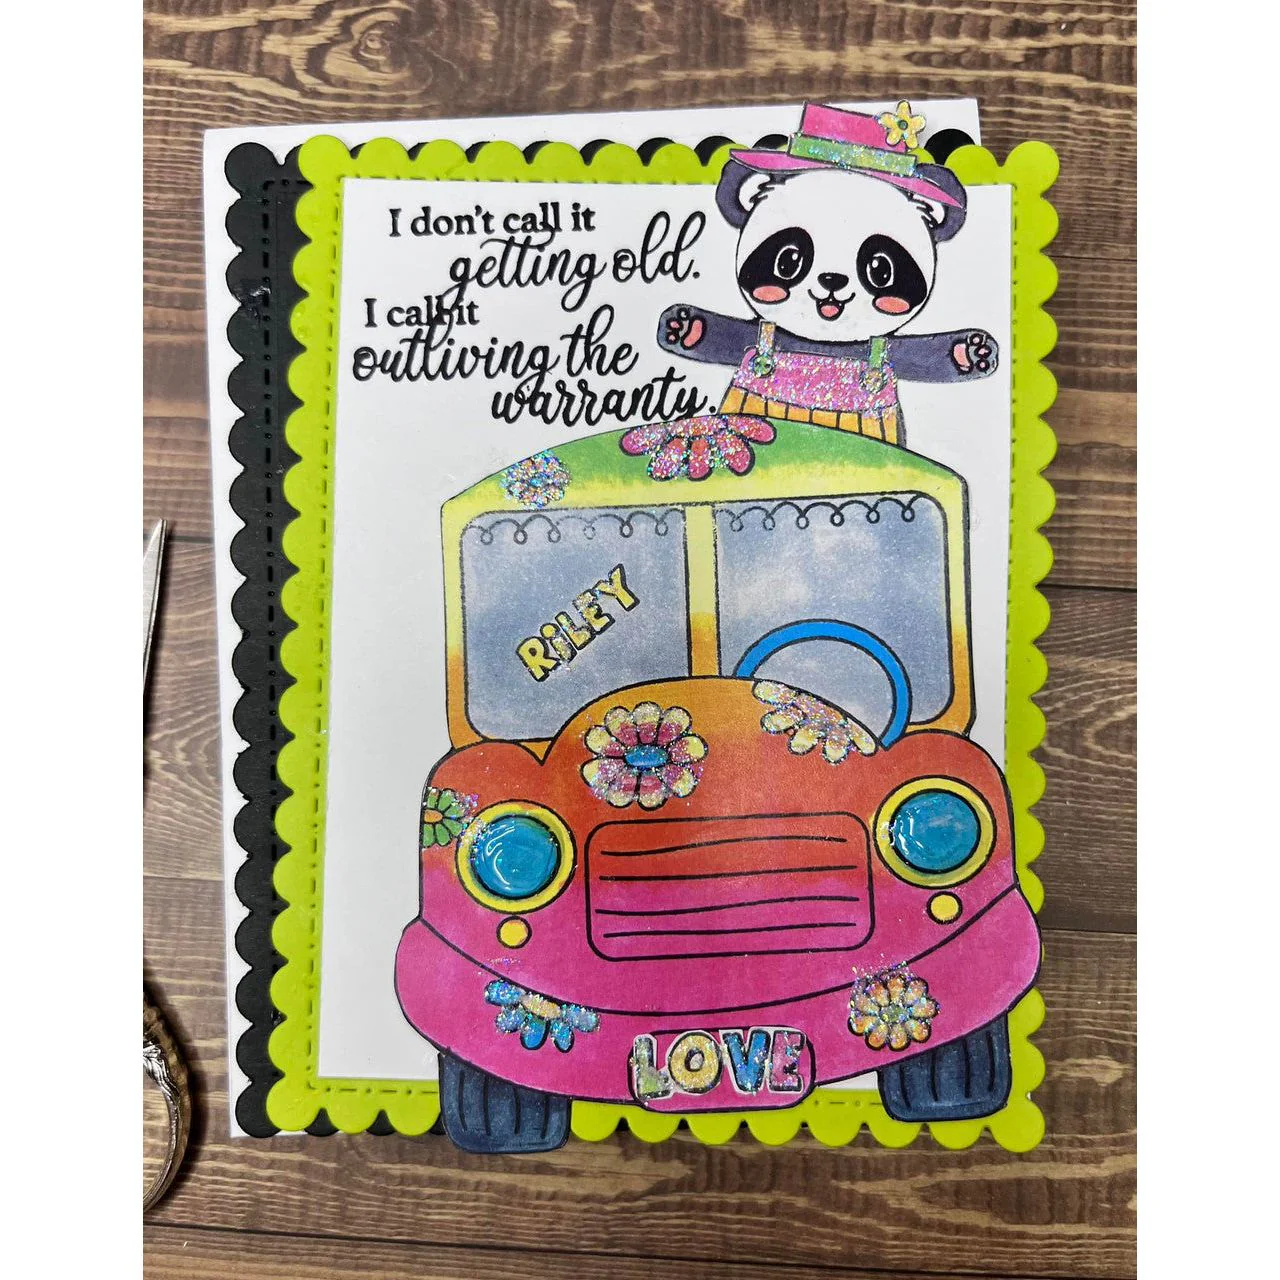 I don't call it
getting old.
I call it
outliving the
warranty.
RiLEY
LOVE